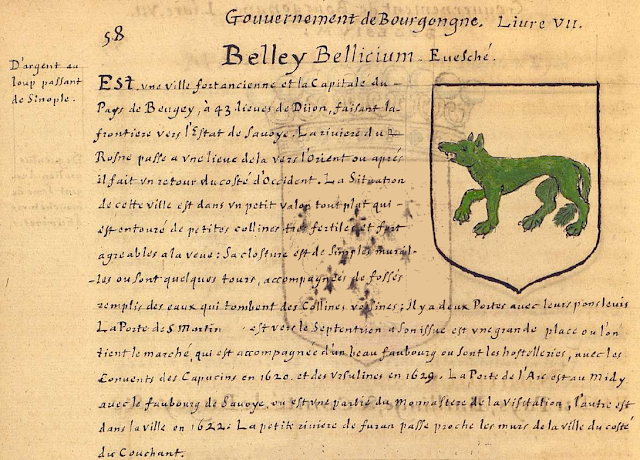 58
Gouuernement de Bourgongne. Liure VII.
Belley Bellicium. Euesché.
D'argent au
loup passant
de Sinople.
Est vne ville fort ancienne et la Capitale du
Pays de Beugey, à 43 lieues de Dijon, faisant la
frontiere vers l'Estat de Sauoye. La riuiere du
Rosne passe a vne lieue de la vers l'Orient ou aprés
il fait vn retour du costé d'Occident. La Situation
de cette ville est dans vn petit valon tout plat qui
est entouré de petites collines fertiles et fort
agreables a la veue: Sa closture est de Simples murail-
-les ou sont quelques tours, accompagnées de fossés
remplis des eaux qui tombent des Collines voisines; Il y a deux Portes auec leurs pons leuis
La Porte de S Martin est vers le Septentrion a son issue est vne grande place ou l'on
tient le marché, qui est accompagnée d'un beau fauboug ou sont les hostelleries, auec les
Conuents des Capucins en 1620. et des Vrsulines en 1629. La Porte de l'Arc est au Midy
auec le faubourg de Sauoye, ou est vne partie du Monnastere de la Visitation, l'autre est
dans la ville en 1622. La petite riuiere de furan passe proche les murs de la ville du costé
du Couchant.